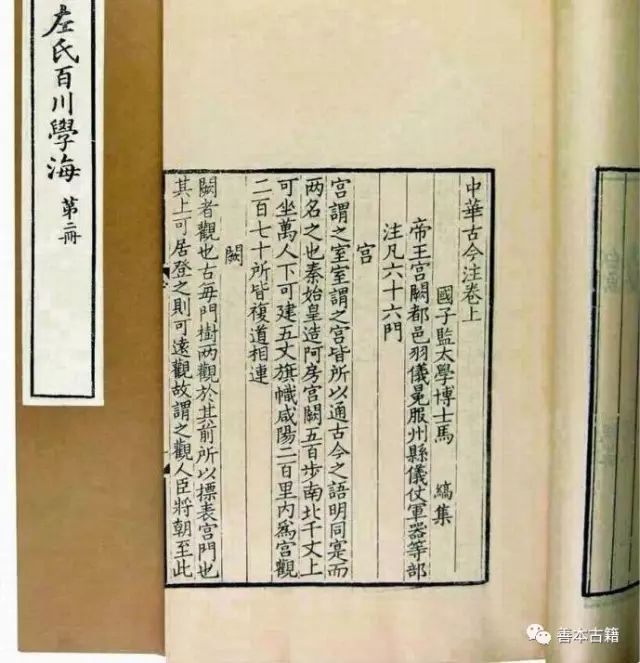 左氏百川學海 第二冊
中華古今注卷上
國子監太學博士馬 縞集
帝王宫闕都邑羽儀冕服州縣儀仗軍器等部
注凡六十六門
宫
宫謂之室室謂之宫皆所以通古今之語明同寔而
两名之也秦始皇造阿房宫闕五百步南北千丈上
可坐萬人下可建五丈旗幟咸陽二百里内爲宫觀
二百七十所皆複道相連
闕
闕者觀也古每門樹两觀於其前所以標表宫門也
其上可居登之則可遠觀故謂之觀人臣將朝至此
善本古籍